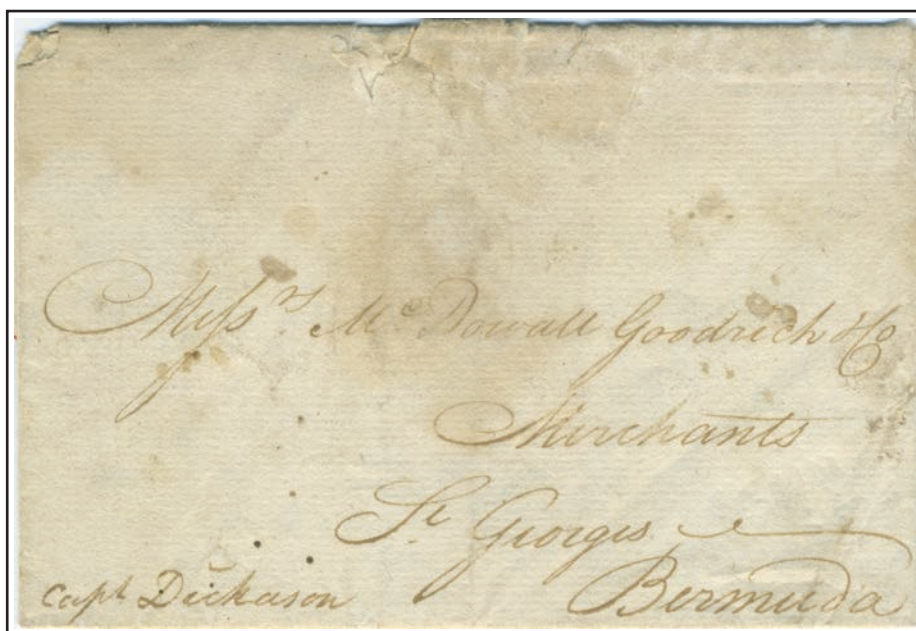 Mess.rs Mc Dowall Goodrich & Co
Merchants
St Georges
Bermuda
Capt Dickason